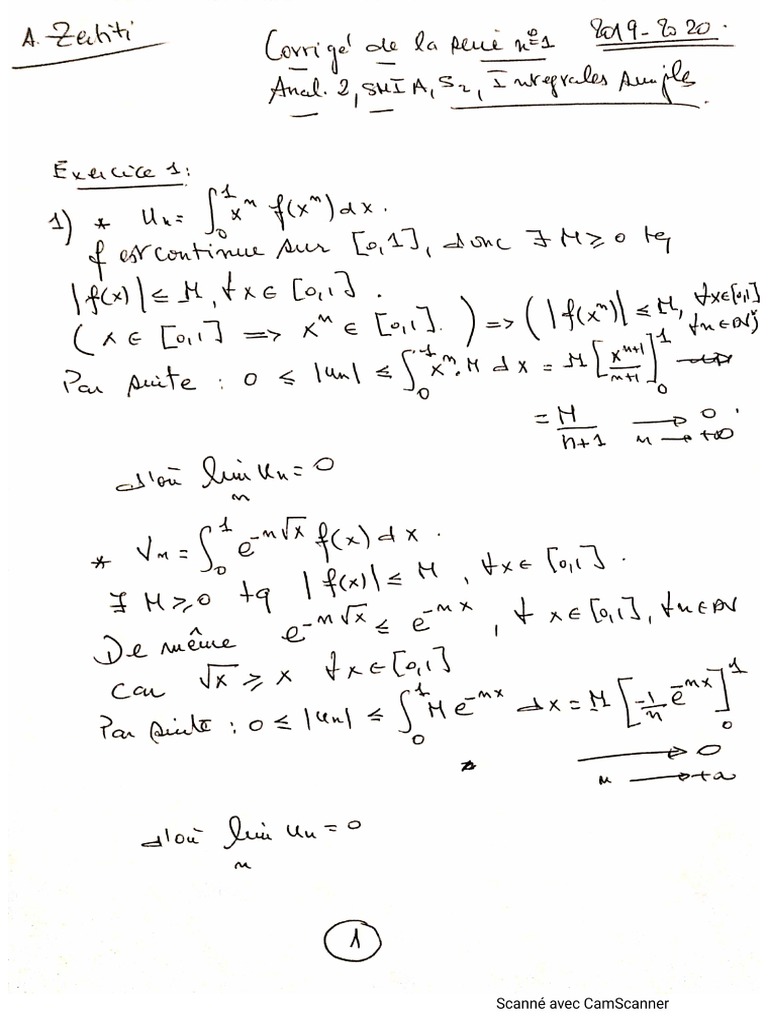 A. Zertiti
Corrigé de la série n°1 2019-2020.
Anal. 2, SMIA, S2, Intégrales simples
Exercice 1:
1) * Un = ∫₀¹ xⁿ f(xⁿ) dx.
f est continue sur [0,1], donc ∃ M ≥ 0 tq
|f(x)| ≤ M, ∀x ∈ [0,1].
(x ∈ [0,1] => xⁿ ∈ [0,1].) => (|f(xⁿ)| ≤ M, ∀x∈[0,1] ∀n∈ℕ)
Par suite : 0 ≤ |un| ≤ ∫₀¹ xⁿ. M dx = M [xⁿ⁺¹/n+1]₀¹
= M/n+1 → 0. n → +∞
d'où lim un = 0
n
* Vn = ∫₀¹ e^{-n√x} f(x) dx.
∃ M ≥ 0 tq |f(x)| ≤ M, ∀x ∈ [0,1].
De même e^{-n√x} ≤ e^{-nx}, ∀ x ∈ [0,1], ∀n∈ℕ
car √x ≥ x ∀x ∈ [0,1]
Par suite : 0 ≤ |un| ≤ ∫₀¹ M e^{-nx} dx = M [-1/n e^{-nx}]₀¹
→ 0
n → +∞
d'où lim un = 0
n
1
Scanné avec CamScanner